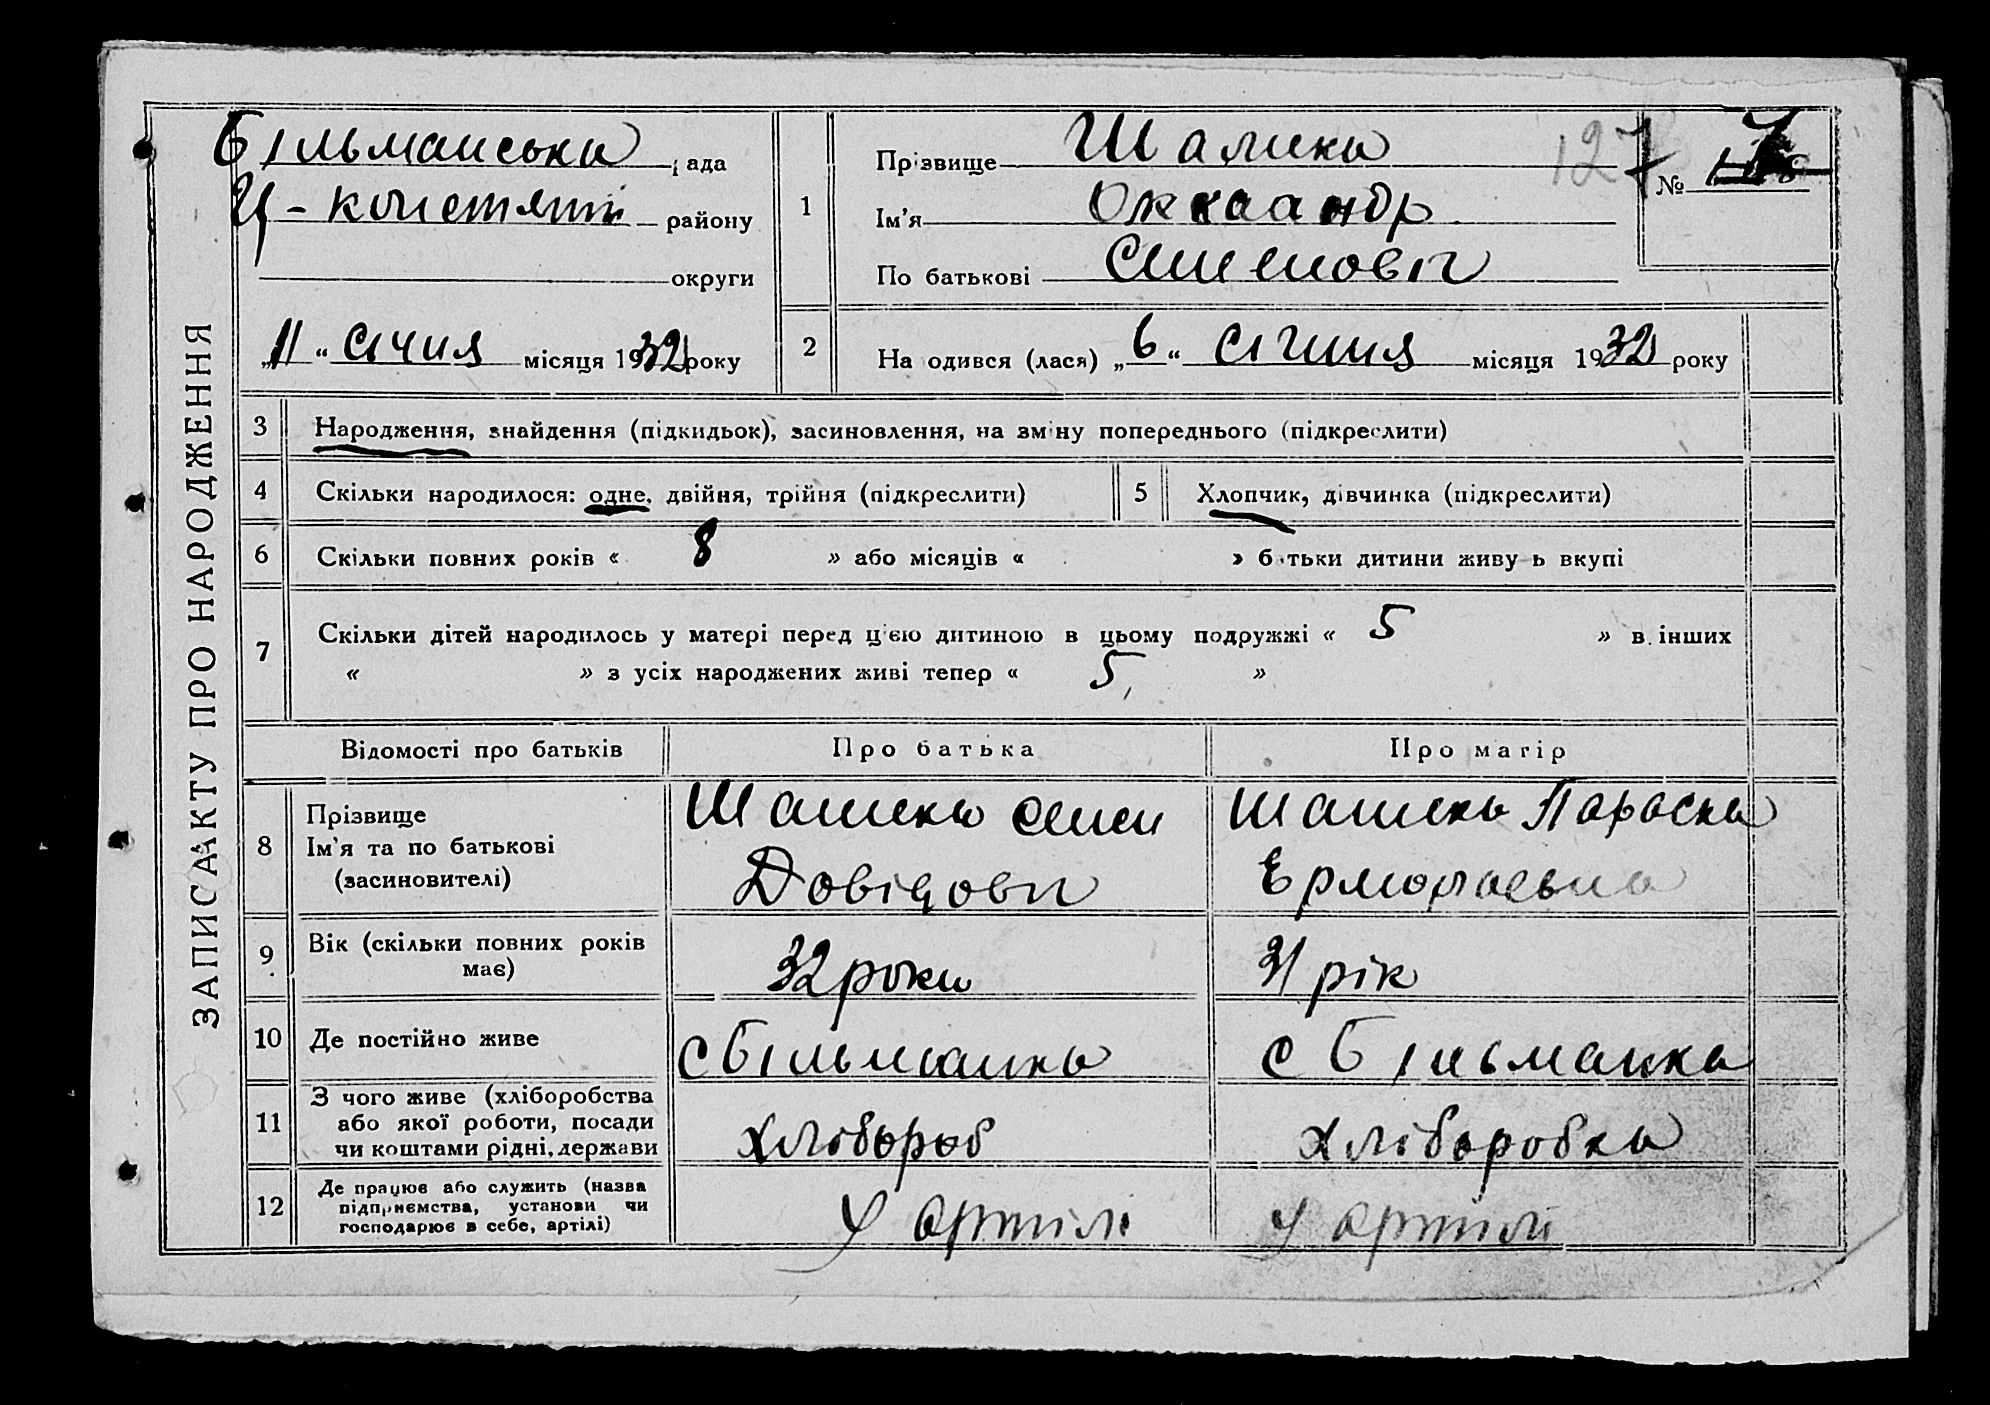 ЗАПИС АКТУ ПРО НАРОДЖЕННЯ
Більманська рада
Ц-констянт району
округи
„11“ січня місяця 1932 року
1 Прізвище
Ім'я
По батькові Семенович
127
№ 7
2 Народився (лася) „6“ січння місяця 1932 року
3 Народження, знайдення (підкидьок), засиновлення, на зміну попереднього (підкреслити)
4 Скільки народилося: одне, двійня, трійня (підкреслити)
5 Хлопчик, дівчинка (підкреслити)
6 Скільки повних років « 8 » або місяців « » батьки дитини живуть вкупі
7 Скільки дітей народилось у матері перед цією дитиною в цьому подружжі « 5 » в інших
« » з усіх народжених живі тепер « 5 »
Відомості про батьків Про батька Про матір
8 Прізвище
Ім'я та по батькові
(засиновителі)
Семен
Довідович
Параска
Ермолаевна
9 Вік (скільки повних років
має)
32 роки
31 рік
10 Де постійно живе
с Більманка
с Більманка
11 З чого живе (хліборобства
або якої роботи, посади
чи коштами рідні, держави
хлібороб
хліборобка
12 Де працює або служить (назва
підприємства, установи чи
господарює в себе, артілі)
у артілі
у артілі